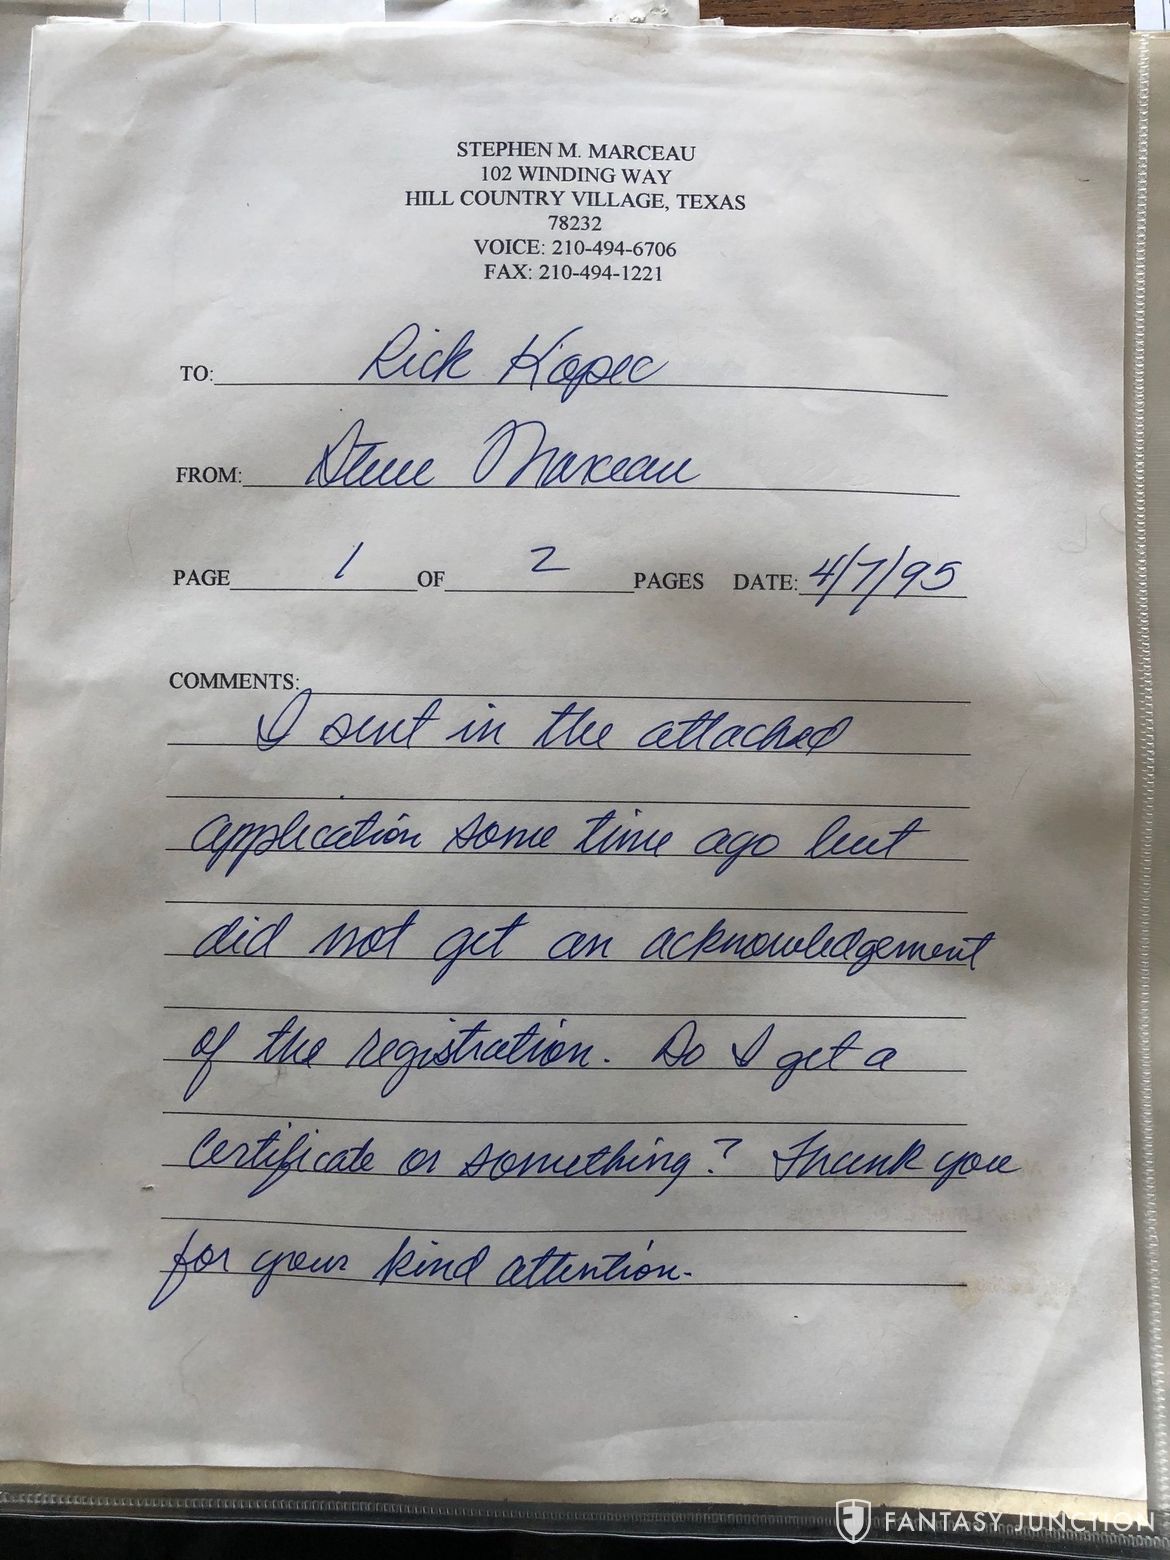 STEPHEN M. MARCEAU
102 WINDING WAY
HILL COUNTRY VILLAGE, TEXAS
78232
VOICE: 210-494-6706
FAX: 210-494-1221
TO: Rick Kopec
FROM: Steve Marceau
PAGE 1 OF 2 PAGES DATE: 4/7/95
COMMENTS:
I sent in the attached
application some time ago but
did not get an acknowledgement
of the registration. Do I get a
certificate or something? Thank you
for your kind attention.
FANTASY JUNCTION